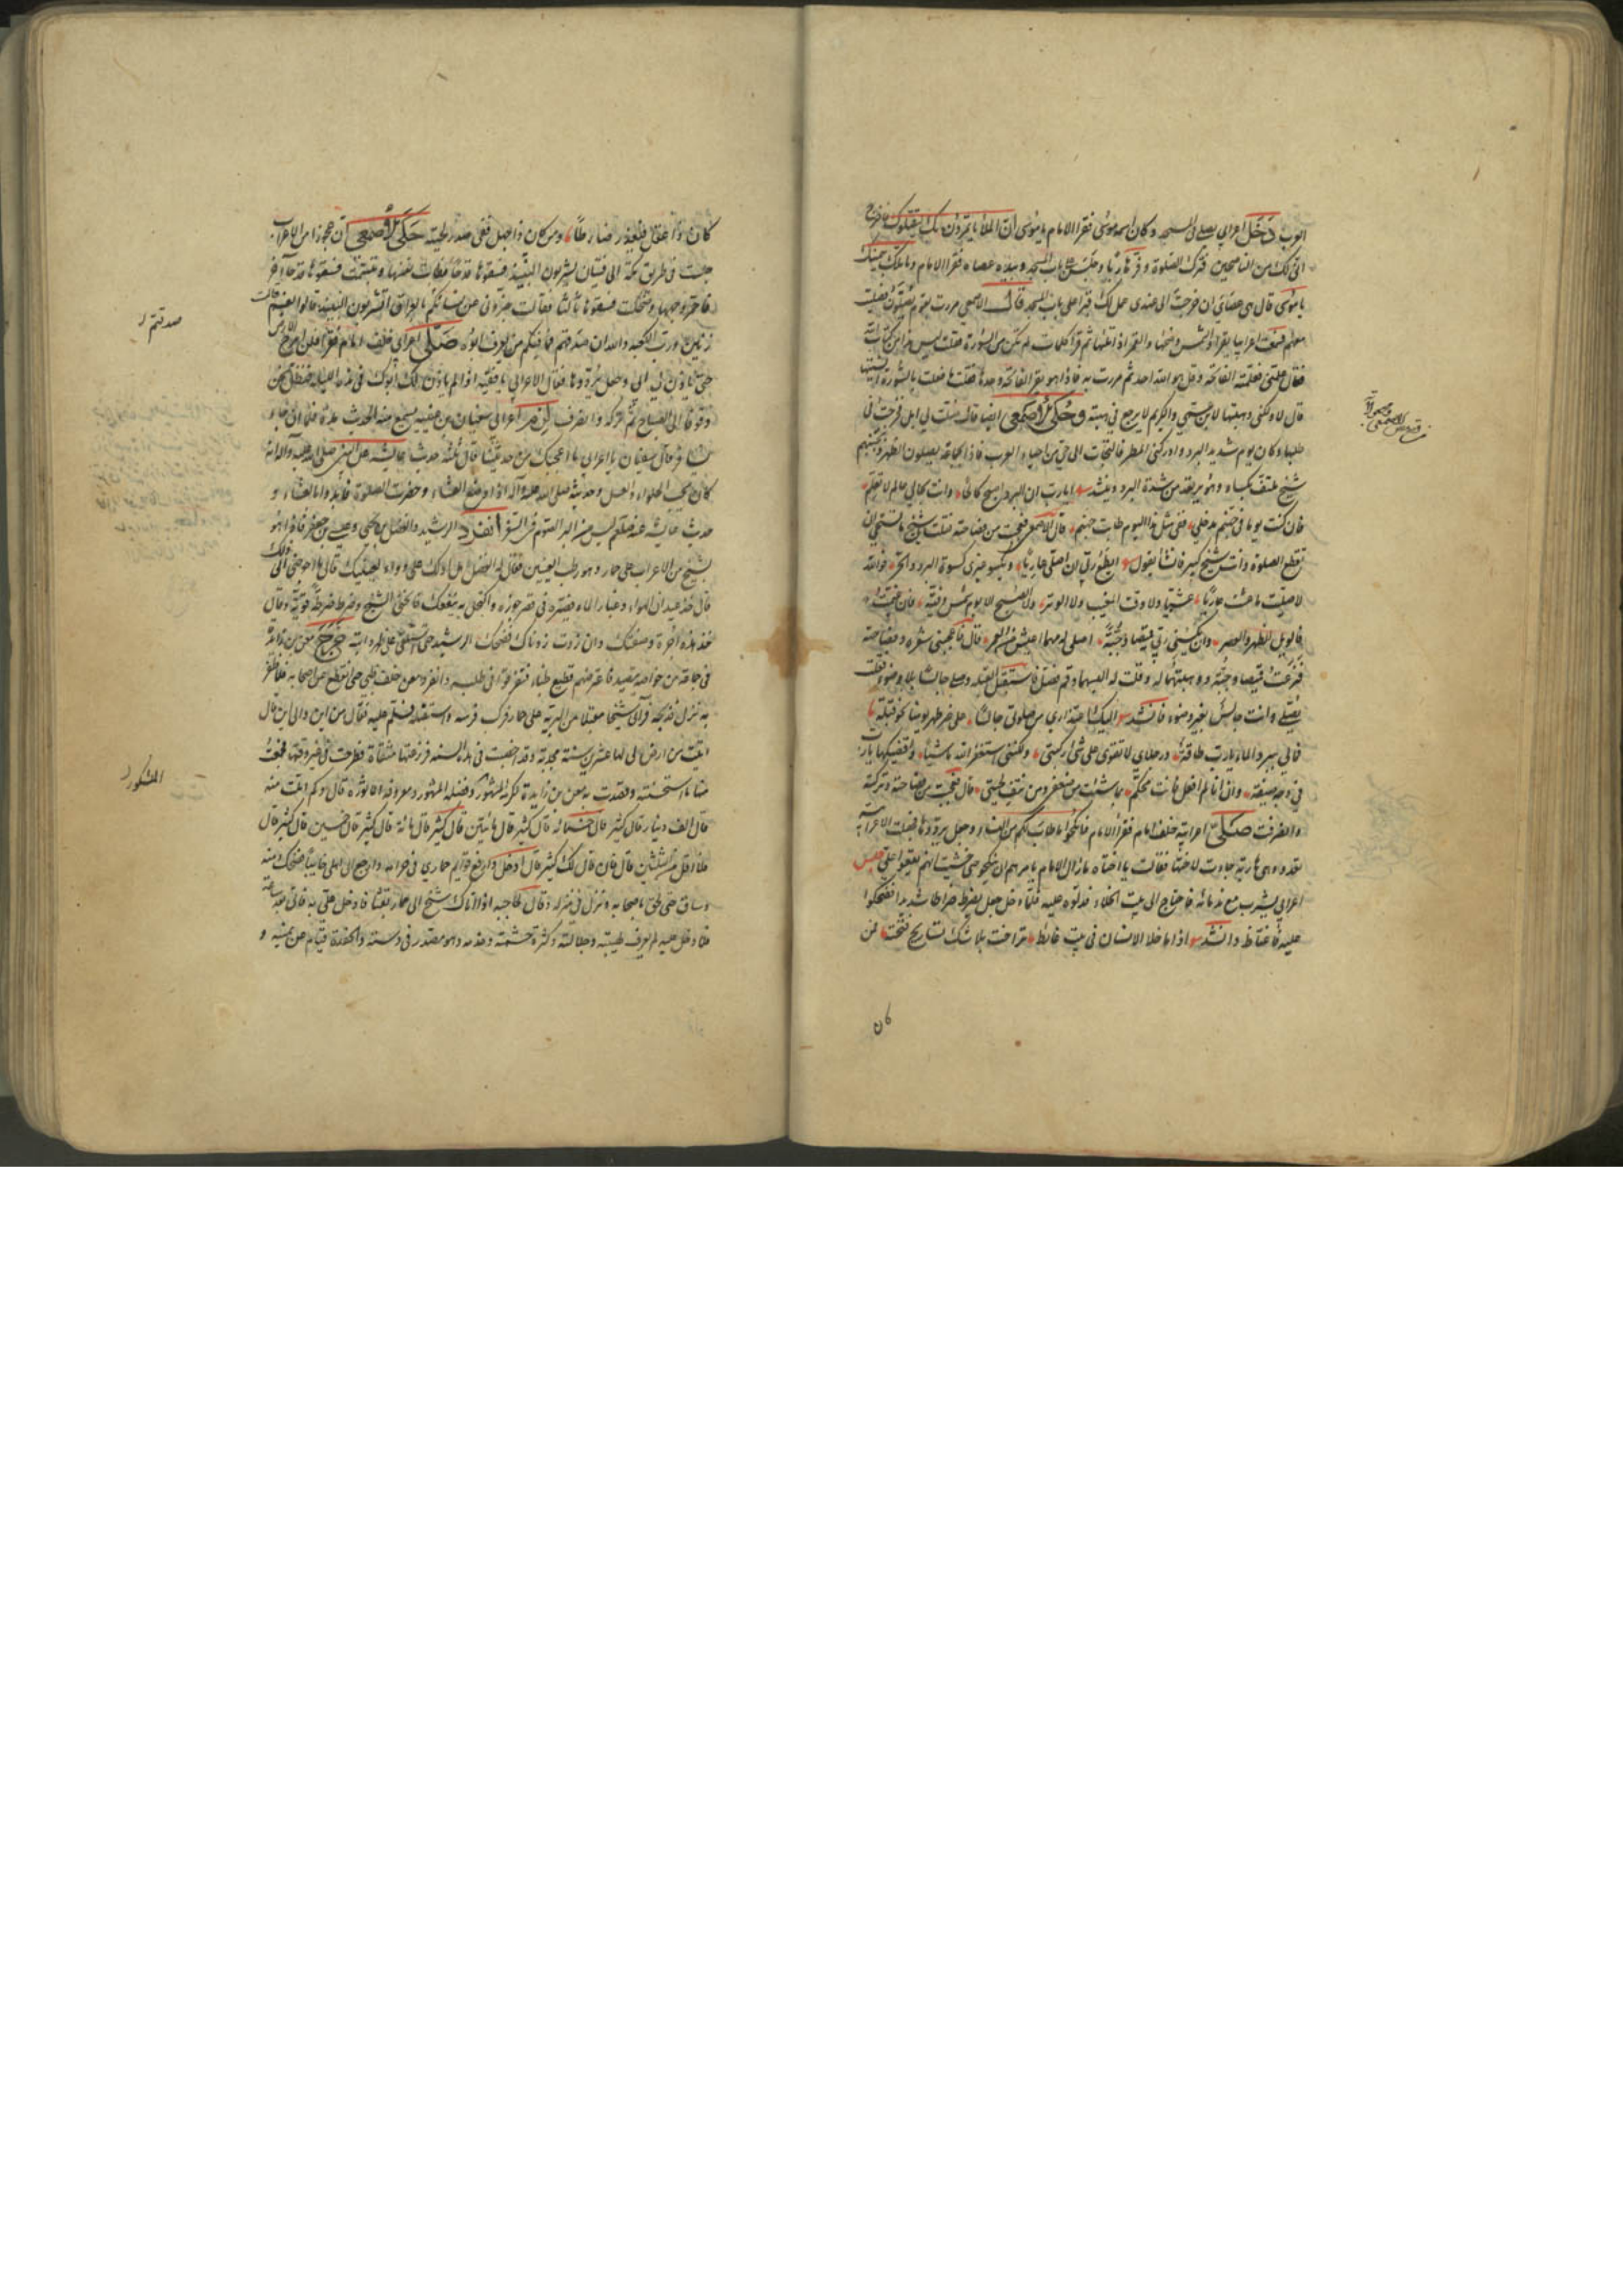 العرب دخل اعرابي يصلي في المسجد وكان اسمه موسى فقرا الامام يا موسى ان الملأ يأتمرون بك ليقتلوك فاخرج
اني لك من الناصحين فترك الصلوة وفر هاربا وجلس على باب المسجد وبيده عصاه فقرا الامام وما تلك بيمينك
يا موسى قال هي عصاي ان خرجت الي عندي عمل لك قبرا على باب المسجد قال الاصمعي مررت بقوم يصلون فصلت
معهم فسمعت اعرابيا يقرا والشمس وضحاها والقمر اذا تلاها ثم قرا كلمات لم تكن من السورة فقلت ليس هذا من كتاب الله
فقال علمني فعلمته الفاتحة وقل هو الله احد ثم مررت به فاذا هو يقرا الفاتحة وحدها فقلت ما فعلت بالسورة انسيتها
قال لا ولكني وهبتها لابن عمي والكريم لا يرجع في هبته وحكى الاصمعي ايضا قال ضلت لي ابل فخرجت في
طلبها وكان يوم شديد البرد وادركني المطر فالتجات الى حي من احياء العرب فاذا بجماعة يصلون الظهر وبجنبهم
شيخ ملتف بكساء وهو يرتعد من شدة البرد وينشد ايا رب ان البرد اصبح كالحا وانت بحالي عالم لا تعلم
فان كنت يوما في جهنم مدخلي ففي مثل هذا اليوم طابت جهنم قال الاصمعي فعجبت من فصاحته فقلت يا شيخ ما تستحي ان
تقطع الصلوة وانت شيخ كبير فانشأ يقول ايطمع ربي ان اصلي عاريا ويكسو غيري كسوة البرد والحر فوالله
لا صليت ما عشت عاريا عشيا ولا وقت المغيب ولا الوتر ولا الصبح الا يوم شمس دفية فان غيمت
فالويل للظهر والعصر وان يكسني ربي قميصا وجبة اصلي له مهما اعيش من العمر قال فاعجبني شعره وفصاحته
فنزعت قميصا وجبة ووهبتهما له وقلت له البسهما وقم فصل فاستقبل القبلة وصلى جالسا بلا وضوء فقلت
تصلي وانت جالس بغير وضوء فانشد اليك اعتذاري من صلوتي جالسا على غير طهر موميا نحو قبلتي
فمالي ببرد الماء يا رب طاقة ورجلاي لا تقوى على ثني ركبتي ولكنني استغفر الله شاتيا واقضيكها يا رب
في وجه صيفة وان انا لم افعل فانت محكم بما شئت من صفعي ومن نتف لحيتي قال فعجبت من فصاحته وتركته
وانصرفت صلت اعرابية خلف امام فقرا الامام فانكحوا ما طاب لكم من النساء وجعل يرددها فصلت الاعرابية
تعدو وهي هاربة جاءت لاختها فقالت يا اختاه ما زال الامام يامرهم ان ينكحونا حتى خشيت انهم يقعوا علي جلس
اعرابي يشرب مع ندمائه فاحتاج الى بيت الخلاء فدلوه عليه فلما دخل جعل يضرط ضراطا شديدا فضحكوا
عليه فاغتاظ وانشد اذا ما خلا الانسان في بيت غائط تراخت بلا شك تساريح فتحته فمن
كان
كان ذا عقل فيعذر ضارطا ومن كان ذا جهل ففي صدر لحيته حكى الاصمعي ان عجوزا من الاعراب
جلست في طريق مكة الى فتيان يشربون النبيذ فسقوها قدحا فطابت نفسها وتبسمت فسقوها قدحا آخر
فاحمر وجهها وضحكت فسقوها ثالثا فقالت خبروني عن نسائكم بالعراق ايشربون النبيذ قالوا نعم قالت
زنين ورب الكعبة والله ان صدقتم ما فيكم من يعرف ابوه صلى اعرابي خلف امام فقرا فلن ابرح الارض
حتى ياذن لي ابي وجعل يرددها فقال الاعرابي يا فقيه اذا لم ياذن لك ابوك في هذه الليلة فنظل نحن
وقوفا الى الصباح ثم تركه وانصرف لزم اعرابي سفيان بن عيينة يسمع منه الحديث مدة فلما ان جاء
يسافر قال سفيان يا اعرابي ما اعجبك من حديثنا قال ثلثة حديث عائشة عن النبي صلى الله عليه وآله انه
كان يحب الحلواء والعسل وحديثه صلى الله عليه وآله اذا وضع العشاء وحضرت الصلوة فابدوا بالعشاء و
حديث عائشة عنه صلعم ليس من البر الصوم في السفر انفرد الرشيد والفضل بن يحيى وعيسى بن جعفر فاذا هو
بشيخ من الاعراب على حمار وهو رطب العينين فقال له الفضل هل ادلك على دواء لعينيك قال ما احوجني الى ذلك
قال خذ عيدان الهواء وغبار الماء فصيره في قشر جوزة واكتحل به ينفعك فانحنى الشيخ وضرط ضرطة قوية وقال
خذ هذه اجرة وصفتك وان زدت زدناك فضحك الرشيد حتى استلقى على ظهر دابته خرج معن بن زائدة
في جماعة من خواصه يتصيد فاعترضهم قطيع ظباء فتفرقوا في طلبه وانفرد معن خلف ظبي حتى انقطع عن اصحابه فلما ظفر
به نزل فذبحه فرآى شيخا مقبلا من البرية على حمار فركب فرسه واستقبله فسلم عليه فقال من اين والى اين قال
اتيت من ارض لي لها عشرين سنة مجدبة وقد اخصبت في هذه السنة فزرعتها مقثاة فطرحت في غير وقتها فجمعت
منها ما استحسنته وقصدت به معن بن زايدة لكرمه المشهور وفضله المشهور ومعروفه الماثور قال وكم املت منه
قال الف دينار قال كثير قال خمسمائة قال كثير قال مائتين قال كثير قال مائة قال كثير قال خمسين قال كثير قال
فلا اقل من الثلثين قال فان قال لك كثير قال ادخل واربع قوايم حماري في حر امه وارجع الى اهلي خايبا فضحك منه
وساق حتى لحق باصحابه ونزل في منزله وقال لحاجبه اذا اتاك شيخ الى حمار بقثاء فادخل علي به فاتى بعد ساعة
فلما دخل عليه لم يعرفه لهيبته وجلالته وكثرة حشمته وخدمه وهو متصدر في دسته والحفدة قيام عن يمينه و
صدقتم
المشكور